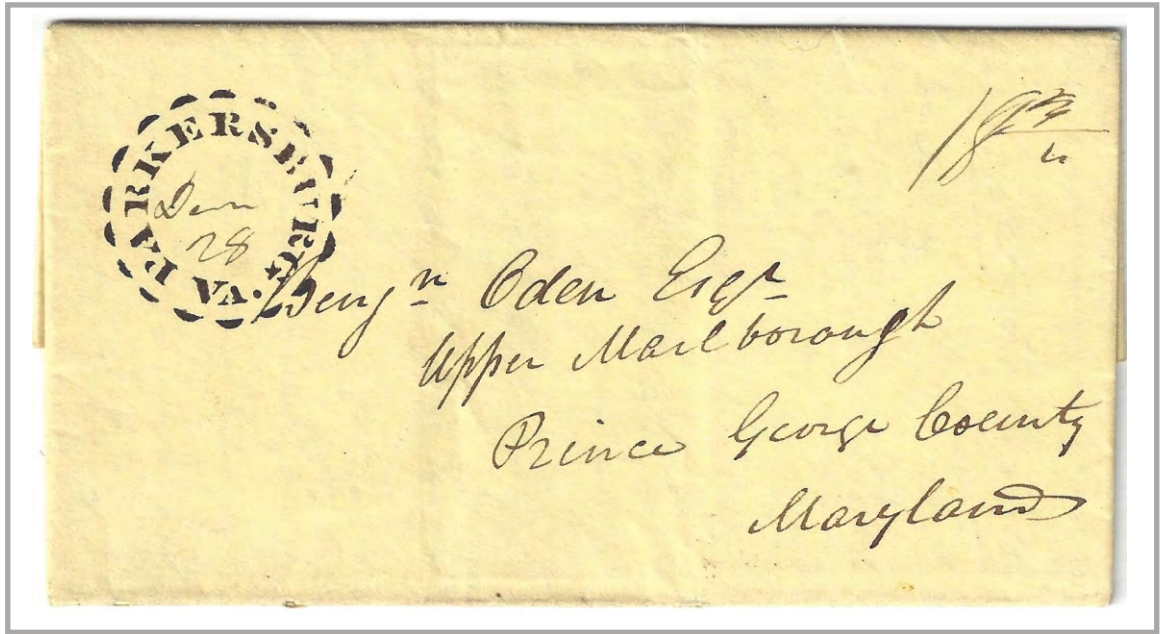 PARKERSBURG. VA
28
18 3/4
Benjn Oden Esqr
Upper Marlborough
Prince George County
Maryland